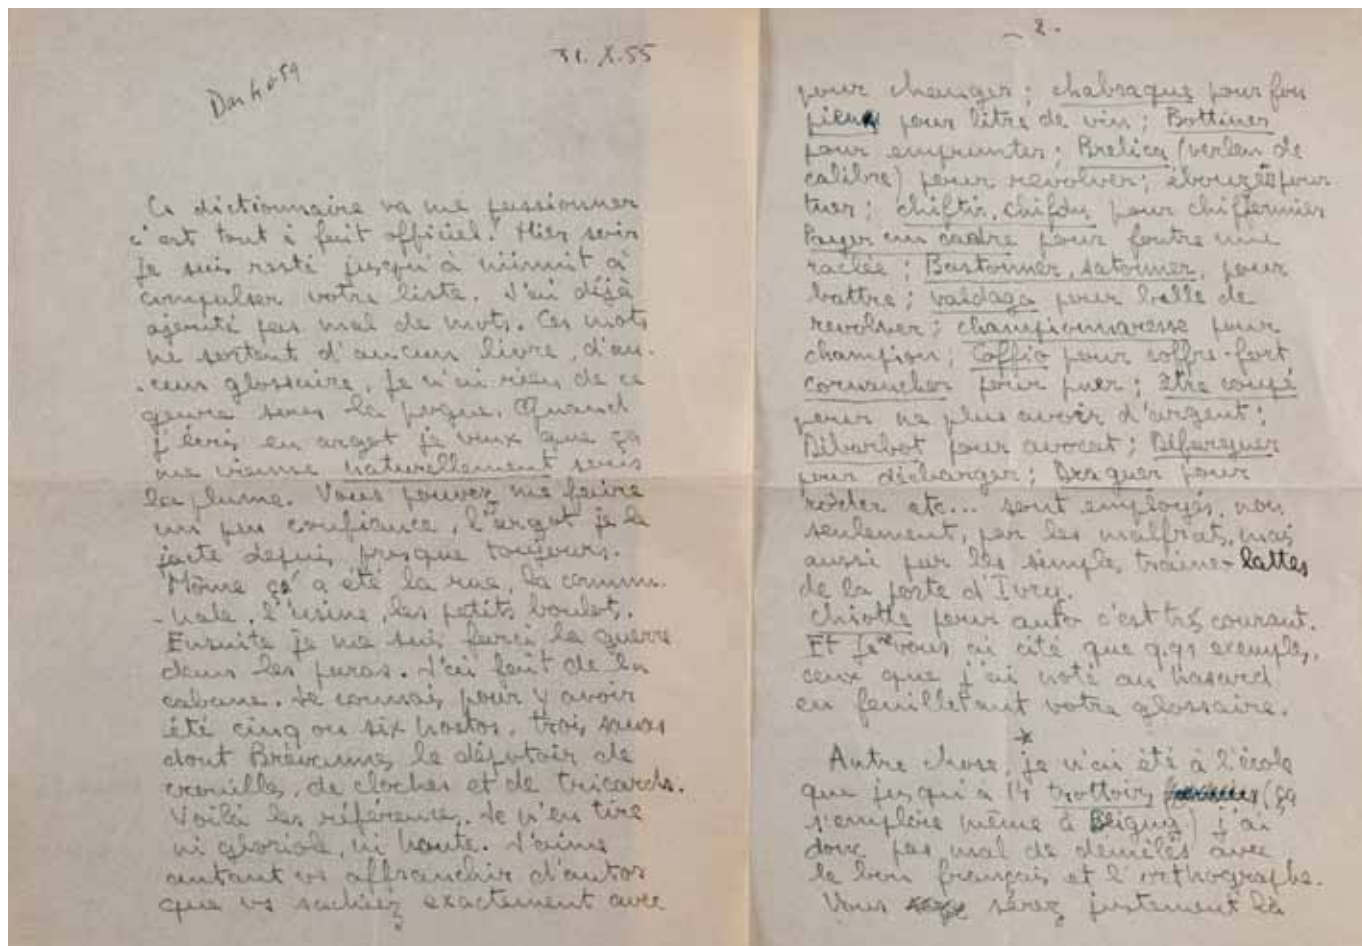 31.X.55
Ce dictionnaire va me passionner
c'est tout à fait officiel. Hier soir
je suis resté jusqu'à minuit à
compulser votre liste. J'ai déjà
ajouté pas mal de mots. Ces mots
ne sortent d'aucun livre, d'au-
-cun glossaire, je n'ai rien de ce
genre sous la pogne. Quand
j'écris en argot je veux que ça
me vienne naturellement sous
la plume. Vous pouvez me faire
un peu confiance, l'argot je le
jacte depuis presque toujours.
Môme ça a été la rue, la commu-
-nale, l'usine, les petits boulots.
Ensuite je me suis farci la guerre
dans les paras. J'ai fait de la
cabane. Je connais pour y avoir
été cinq ou six hostos, trois sanas
dont Brévannes le dépotoir de
crouilles, de cloches et de tricards.
Voilà les références. Je n'en tire
ni gloriole, ni honte. J'aime
autant vs affranchir d'autor
que vs sachiez exactement avec
- 2 -
pour changer ; chabraque pour fou
pour litre de vin ; Bottiner
pour emprunter ; Brelica (verlan de
calibre) pour revolver ; ébouzer pour
tuer ; chiftir, chifdu pour chiffonnier
Payer un cadre pour foutre une
raclée ; Bastonner, satonner, pour
battre ; valdaga pour balle de
revolver ; championnaresse pour
champion ; Coffio pour coffre-fort
cornancher pour puer ; être coupé
pour ne plus avoir d'argent ;
Débarbot pour avocat ; Défarguer
pour décharger ; Draguer pour
rôder etc... sont employés, non
seulement, par les malfrats, mais
aussi par les simples traine-lattes
de la porte d'Ivry.
Chiotte pour auto c'est très courant.
Et je ne vous ai cité que qqs exemples,
ceux que j'ai noté au hasard
en feuilletant votre glossaire.
*
Autre chose, je n'ai été à l'école
que jusqu'à 14 trottoirs (ça
s'emploie même à Bligny) j'ai
donc pas mal de démêlés avec
le bon français et l'orthographe.
Vous serez justement là